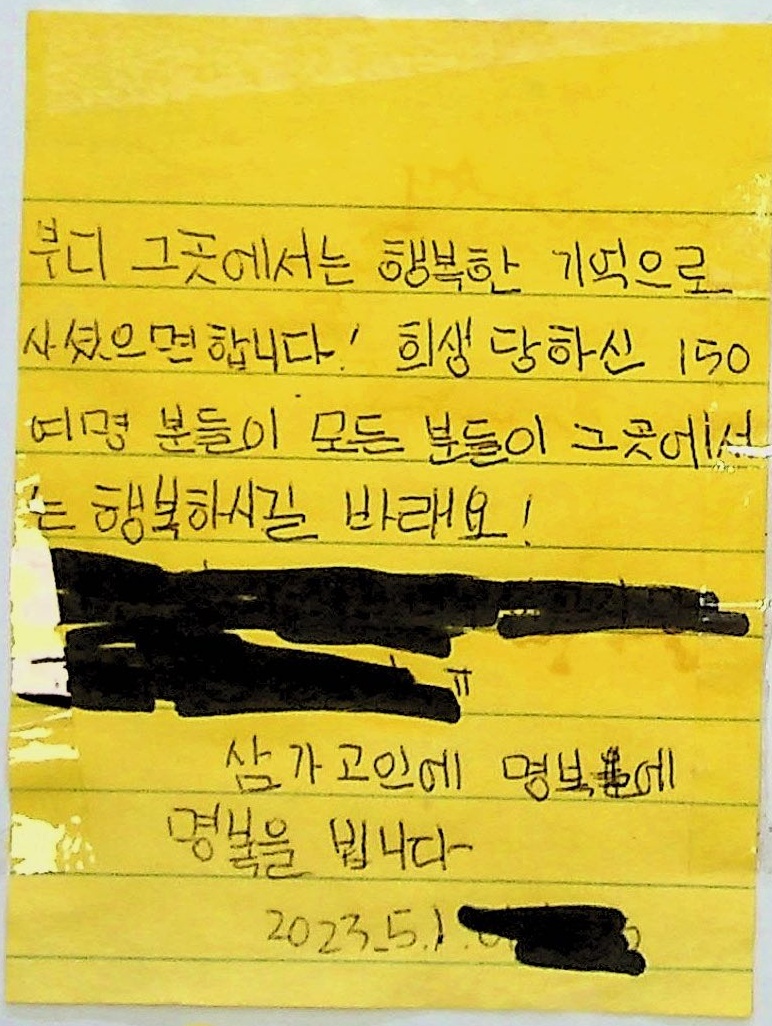 부디 그곳에서는 행복한 기억으로
사셨으면 합니다! 희생 당하신 150
여명 분들이 모든 분들이 그곳에서
는 행복하시길 바래요!
ㅠ
삼가 고인에 명복에
명복을 빕니다
2023.5.1.